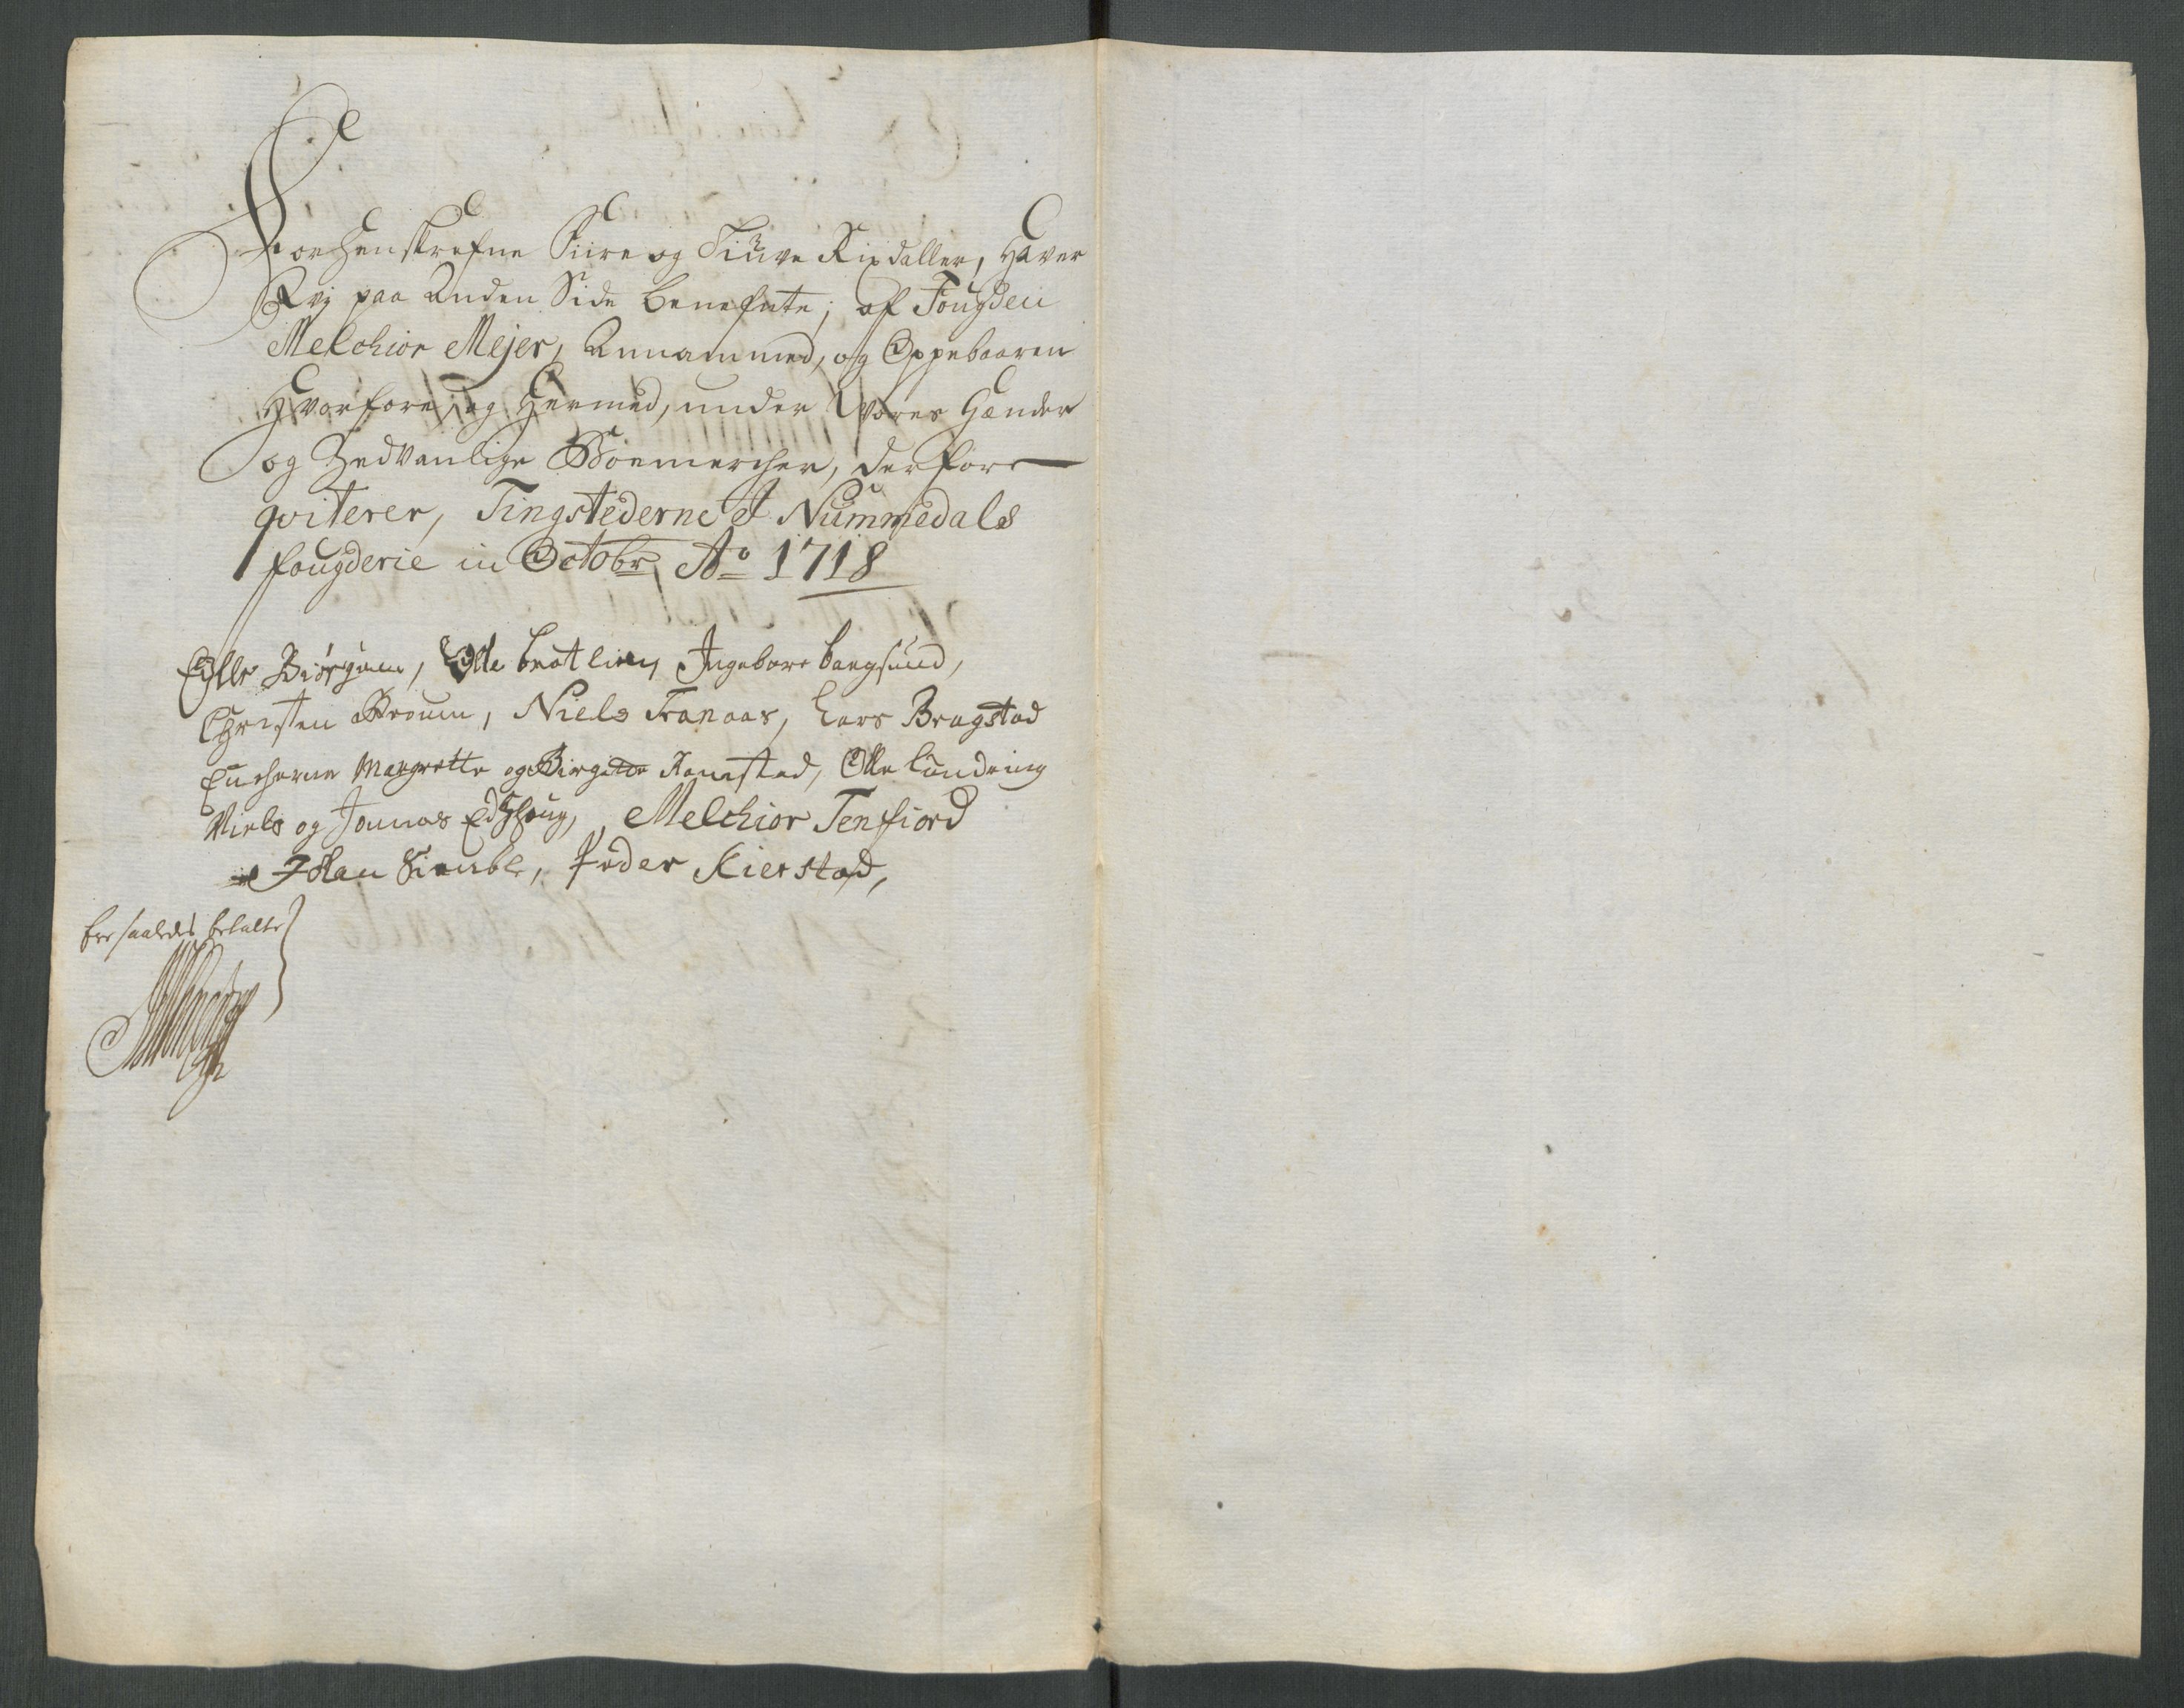 Forhenskrefne Fiire og Tiuve Rixdaller, Haver
Vj paa Anden Side benefnte; af Fougden
Melchior Mejer, Annammed, og Oppebaaren
Hvorfore, og Hermed, under Vores Hænder
og Zedvanlige Boemercher, derfore
qviterer, Tingstederne J Nummedals
fougderie in Octobr Ao 1718
Biørgum, Olle bratlien, Jngebore bangsund,
Christen Broum, Niels Tranaas, Lars Bragstad
Encherne Margrette og Birgette Ramstad, Olle Lundring
Niels og Jonnas Edshoug, Melchior Tenfiord
Johan Peder Kierstad,
Er saaledes betalte